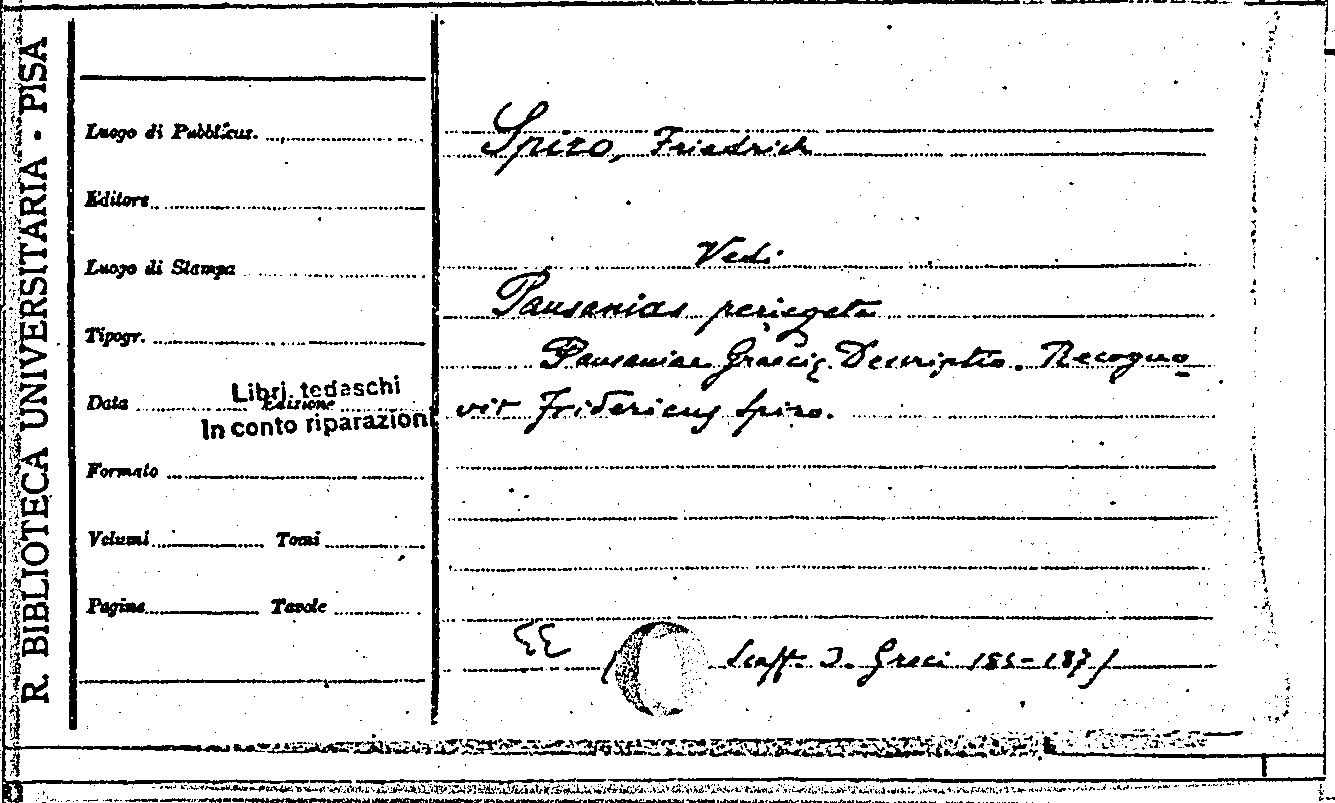 R. BIBLIOTECA UNIVERSITARIA - PISA
Luogo di Pubblicaz.
Editore
Luogo di Stampa
Tipogr.
Data
Libri tedeschi
Edizione
In conto riparazioni
Formato
Volumi Tomi
Pagine Tavole
Spiro, Friedrich
Vedi
Pausanias periegeta
Pausaniae Graecię Descriptio. Recogno-
vit Fridericus Spiro.
Scaff. I. Greci